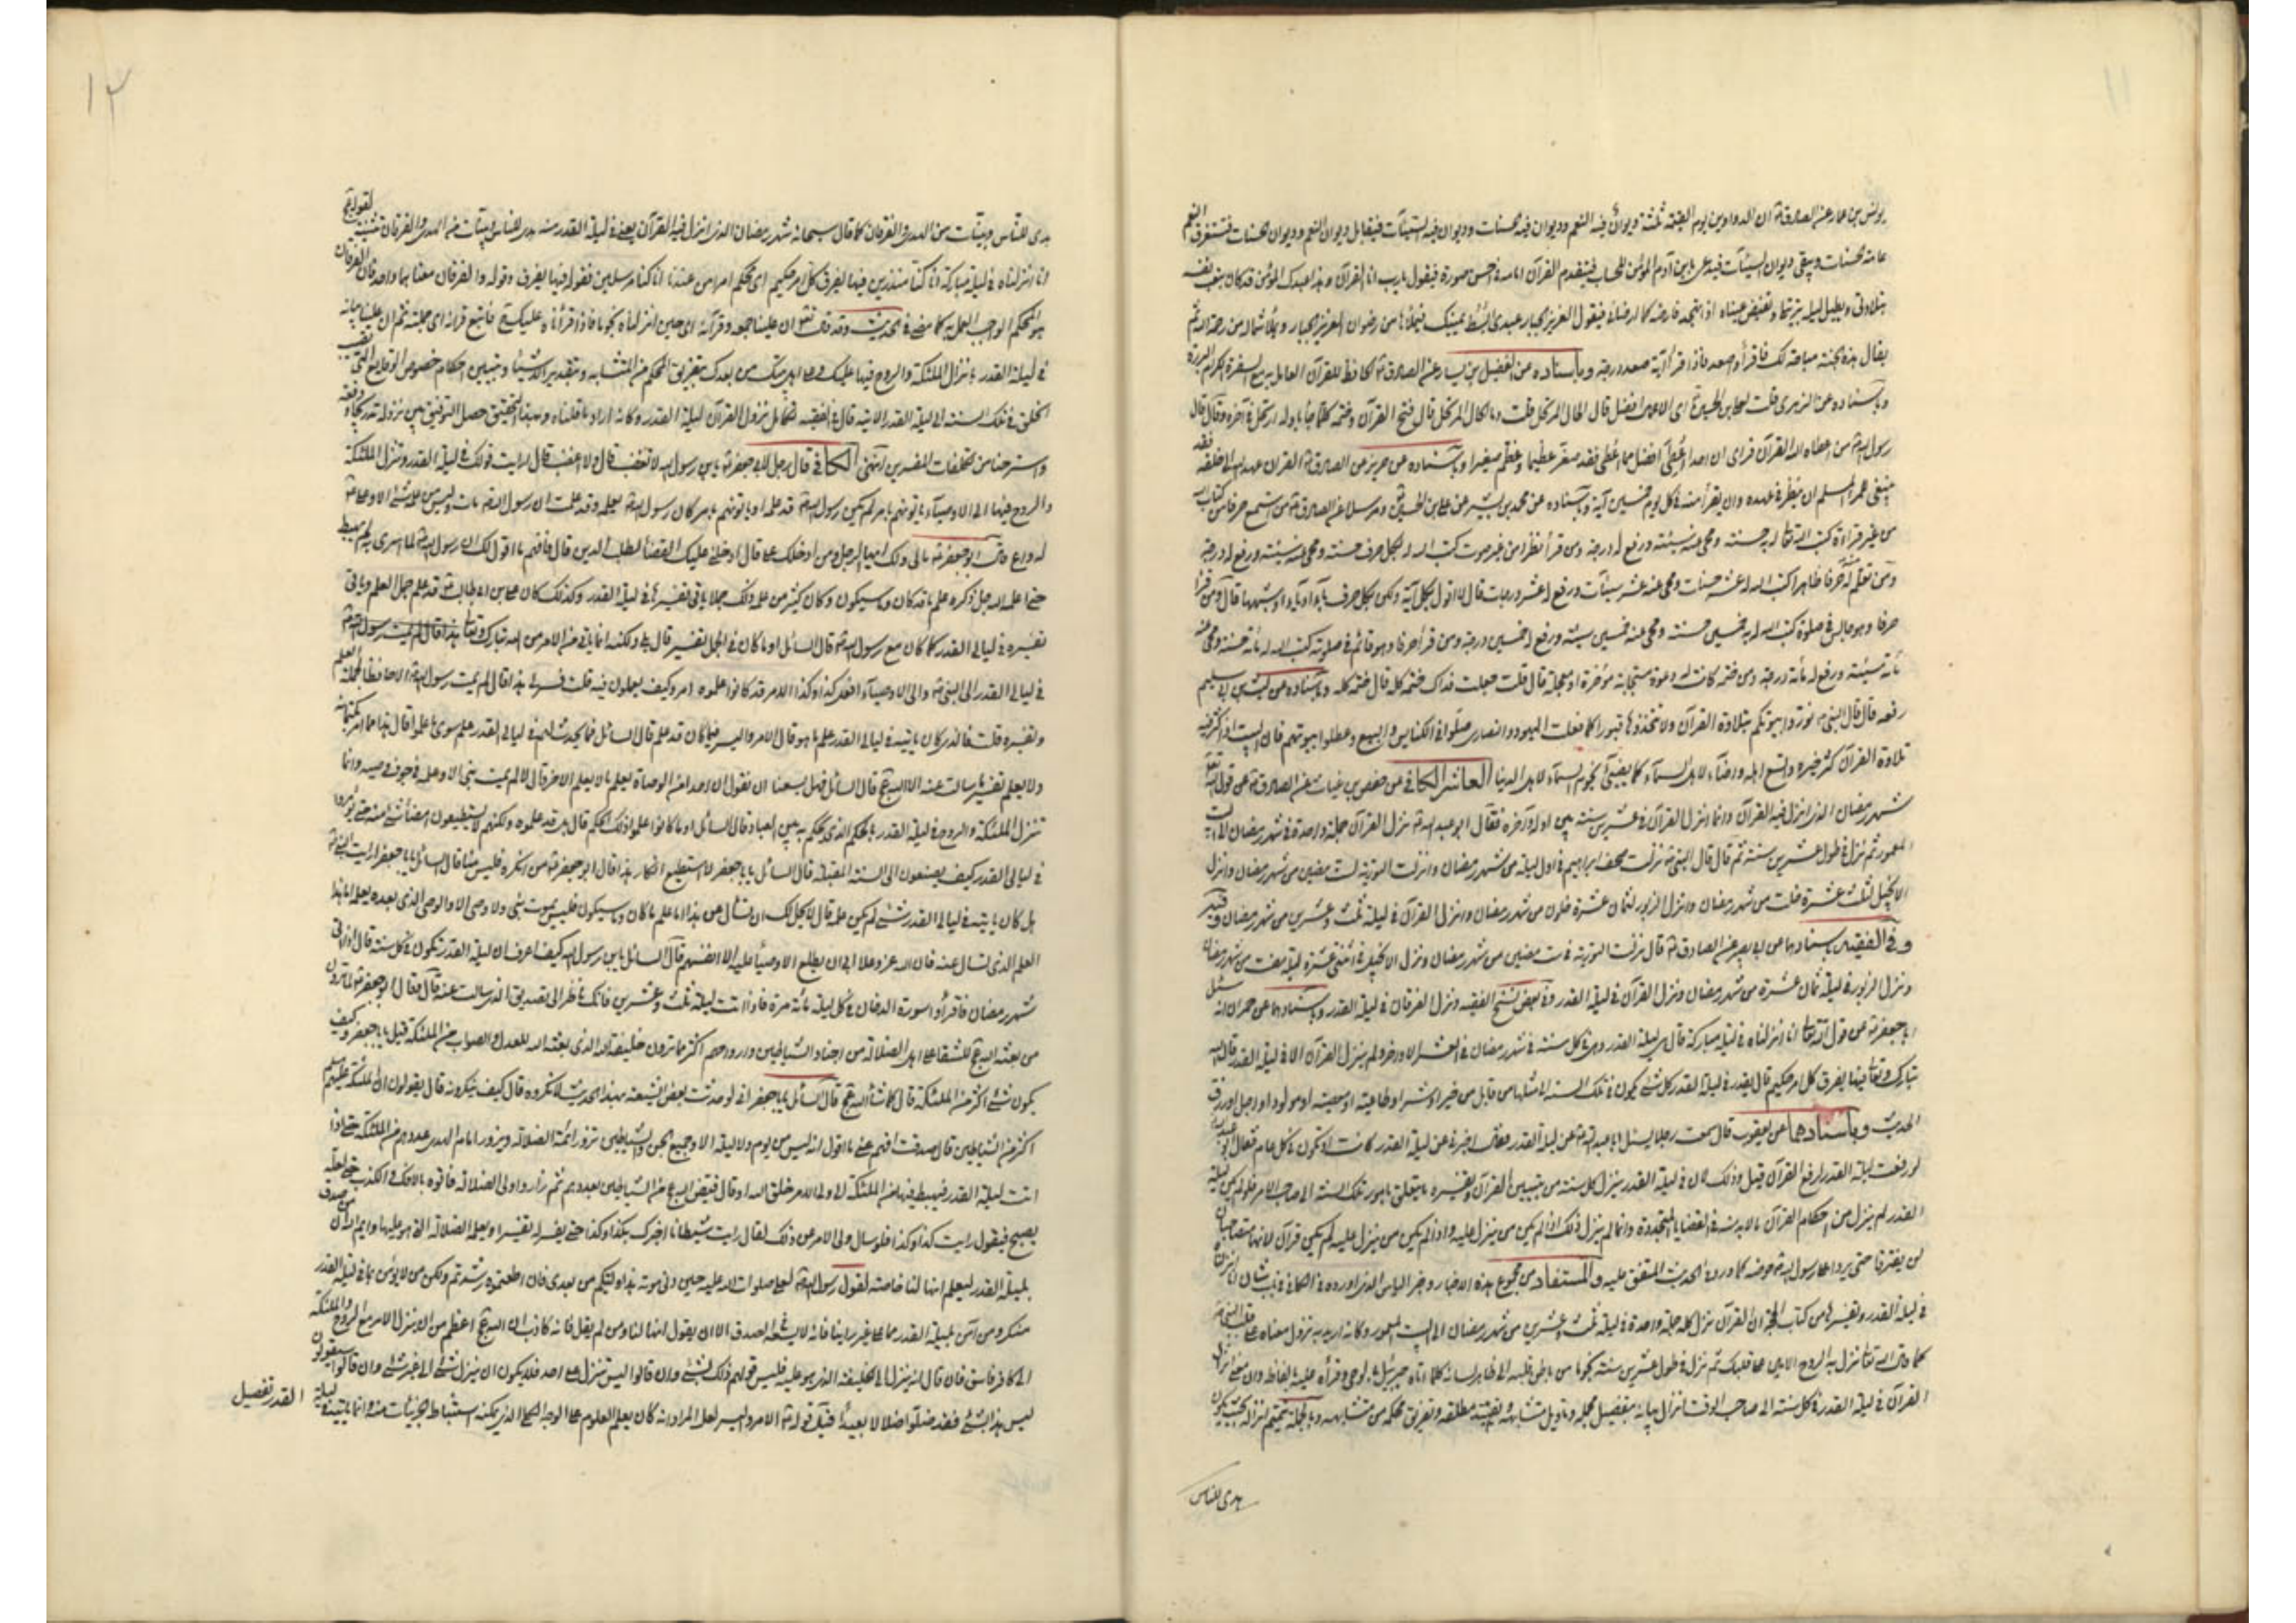 ١١
يونس بن عمار عن الصادق ان الدواوين يوم القيمة ثلثة ديوان فيه النعم وديوان فيه الحسنات وديوان فيه السيئات فيقابل ديوان النعم وديوان الحسنات فتستغرق النعم
عامة الحسنات ويبقى ديوان السيئات فيدعى ابن آدم المؤمن للحساب فيتقدم القرآن امامه في احسن صورة فيقول يارب انا القرآن وهذا عبدك المؤمن قد كان يتعب نفسه
بتلاوتي ويطيل ليله بترتيلي وتفيض عيناه اذا تهجد فارضه كما ارضاني فيقول العزيز الجبار عبدي ابسط يمينك فيملأها من رضوان العزيز الجبار ويملأ شماله من رحمة الله ثم
يقال هذه الجنة مباحة لك فاقرأ واصعد فاذا قرأ آية صعد درجة وباسناده عن الفضيل بن يسار عن الصادق الحافظ للقرآن العامل به مع السفرة الكرام البررة
وباسناده عن الزهري قلت لعلي بن الحسين اي الاعمال افضل قال الحال المرتحل قلت وما الحال المرتحل قال فتح القرآن وختمه كلما جاء باوله ارتحل في آخره وقال قال
رسول الله من اعطاه الله القرآن فرأى ان احدا اعطي افضل مما اعطي فقد صغر عظيما وعظم صغيرا وباسناده عن حريز عن الصادق القرآن عهد الله الى خلقه فقد
ينبغي للمرء المسلم ان ينظر في عهده وان يقرأ منه في كل يوم خمسين آية وباسناده عن محمد بن بشير عن علي بن الحسين ومرسلا عن الصادق من استمع حرفا من كتاب الله
من غير قراءة كتب الله تعالى له حسنة ومحى عنه سيئة ورفع له درجة ومن قرأ نظرا من غير صوت كتب الله له بكل حرف حسنة ومحى عنه سيئة ورفع له درجة
ومن تعلم منه حرفا ظاهرا كتب الله له عشر حسنات ومحى عنه عشر سيئات ورفع له عشر درجات قال لا اقول بكل آية ولكن بكل حرف باء او تاء او شبههما قال ومن قرأ
حرفا وهو جالس في صلوة كتب الله له به خمسين حسنة ومحى عنه خمسين سيئة ورفع له خمسين درجة ومن قرأ حرفا وهو قائم في صلوته كتب الله له مائة حسنة ومحى عنه
مائة سيئة ورفع له مائة درجة ومن ختمه كانت له دعوة مستجابة مؤخرة او معجلة قال قلت جعلت فداك ختمه كله قال ختمه كله وباسناده عن ليث بن ابي سليم
رفعه قال قال النبي نوروا بيوتكم بتلاوة القرآن ولا تتخذوها قبورا كما فعلت اليهود والنصارى صلوا في الكنايس والبيع وعطلوا بيوتهم فان البيت اذا كثر فيه
تلاوة القرآن كثر خيره واتسع اهله واضاء لاهل السماء كما يضيئ نجوم السماء لاهل الدنيا العاشر الكافي عن حفص بن غياث عن الصادق عن قول الله تعالى
شهر رمضان الذي انزل فيه القرآن وانما انزل القرآن في عشرين سنة بين اوله وآخره فقال ابو عبد الله نزل القرآن جملة واحدة في شهر رمضان الى البيت
المعمور ثم نزل في طول عشرين سنة ثم قال قال النبي نزلت صحف ابراهيم في اول ليلة من شهر رمضان وانزلت التورية لست مضين من شهر رمضان وانزل
الانجيل لثلث عشرة خلت من شهر رمضان وانزل الزبور لثمان عشرة خلون من شهر رمضان وانزل القرآن في ليلة ثلث وعشرين من شهر رمضان
وفي الفقيه باسناده عن ابي بصير عن الصادق قال نزلت التورية في ست مضين من شهر رمضان ونزل الانجيل في اثنتي عشرة ليلة مضت من شهر رمضان
ونزل الزبور في ليلة ثمان عشرة من شهر رمضان ونزل القرآن في ليلة القدر وفي بعض نسخ الفقيه ونزل الفرقان في ليلة القدر وباسنادهما عن حمران انه سئل
ابا جعفر عن قول الله تعالى انا انزلناه في ليلة مباركة قال هي ليلة القدر وهي في كل سنة في شهر رمضان في العشر الاواخر ولم ينزل القرآن الا في ليلة القدر قال الله
تبارك وتعالى فيها يفرق كل امر حكيم قال يقدر في ليلة القدر كل شيء يكون في تلك السنة الى مثلها من قابل من خير او شر او طاعة او معصية او مولود او اجل او رزق
الحديث وباسنادهما عن يعقوب قال سمعت رجلا يسئل ابا عبد الله عن ليلة القدر فقال اخبرني عن ليلة القدر كانت او تكون في كل عام فقال ابو عبد الله
لو رفعت ليلة القدر لرفع القرآن قيل وذلك لان في ليلة القدر ينزل كل سنة من تبيين القرآن وتفسيره ما يتعلق بامور تلك السنة الى صاحب الامر فلو لم يكن ليلة
القدر لم ينزل من احكام القرآن ما لابد منه في القضايا المتجددة وانما لم ينزل ذلك اذا لم يكن من ينزل عليه واذا لم يكن من ينزل عليه لم يكن قرآن لانهما متصاحبان
لن يفترقا حتى يردا على رسول الله حوضه كما ورد في الحديث المتفق عليه والمستفاد من مجموع هذه الاخبار وخبر الياس الذي اورده في الكافي في باب شأن انا انزلناه
في ليلة القدر وتفسيرها من كتاب الحجة ان القرآن نزل كله جملة واحدة في ليلة ثلث وعشرين من شهر رمضان الى البيت المعمور وكانه اريد به نزول معناه على قلب النبي
كما قال الله تعالى نزل به الروح الامين على قلبك ثم نزل في طول عشرين سنة نجوما من باطن قلبه الى ظاهر لسانه كلما اتاه جبرئيل بالوحي وقرأه عليه بالفاظه وان معنى انزال
القرآن في ليلة القدر في كل سنة الى صاحب الوقت انزال بيانه بتفصيل مجمله وتأويل متشابهه وتقييد مطلقه وتفريق محكمه من متشابهه وبالجملة تتميم انزاله بحيث يكون
هدى للناس
١٢
هدى للناس وبينات من الهدى والفرقان كما قال سبحانه شهر رمضان الذي انزل فيه القرآن يعني في ليلة القدر منه هدى للناس وبينات من الهدى والفرقان تثنية لقوله تع
انا انزلناه في ليلة مباركة انا كنا منذرين فيها يفرق كل امر حكيم اي محكم امرا من عندنا انا كنا مرسلين فقوله فيها يفرق وقوله والفرقان معناهما واحد فان الفرقان
هو المحكم الواجب العمل به كما مضى في الحديث وقد قال تعالى ان علينا جمعه وقرآنه اي حين انزلناه نجوما فاذا قرأناه عليك ح فاتبع قرآنه اي جملته ثم ان علينا بيانه
في ليلة القدر بانزال الملئكة والروح فيها عليك وعلى اهل بيتك من بعدك بتفريق المحكم من المتشابه وبتقدير الاشياء وتبيين احكام خصوص الوقايع التي تصيب
الخلق في تلك السنة الى ليلة القدر الاتية قال في الفقيه تكامل نزول القرآن ليلة القدر وكانه اراد به ما قلناه وبهذا التحقيق حصل التوفيق بين نزوله تدريجا ودفعة
واسترحنا من تكلفات المفسرين انتهى الكافي قال رجل لابي جعفر يابن رسول الله لا تغضب قال ولا اغضب قال ارايت قولك في ليلة القدر وتنزل الملئكة
والروح فيها الى الاوصياء يأتونهم بامر لم يكن رسول الله قد علمه او يأتونهم بامر كان رسول الله يعلمه وقد علمت ان رسول الله مات وليس من علمه شئ الا وعلي
له واع قال ابو جعفر مالي ولك ايها الرجل ومن ادخلك علي قال ادخلني عليك القضا لطلب الدين قال فافهم ما اقول لك ان رسول الله لما اسرى به لم يهبط
حتى اعلمه الله جل ذكره علم ما قد كان وما سيكون وكان كثير من علمه ذلك جملا ياتي تفسيرها في ليلة القدر وكذلك كان علي بن ابي طالب قد علم جمل العلم وياتي
تفسيره في ليالي القدر كما كان مع رسول الله قال السائل اوما كان في الجمل تفسير قال بلى ولكنه انما ياتي من الامر من الله تبارك وتعالى
في ليالي القدر الى النبي والى الاوصياء افعل كذا وكذا لامر قد كانوا علموه امروا كيف يعملون فيه قلت فسر لي هذا قال لم يمت رسول الله الا حافظا لجملة العلم
وتفسيره قلت فالذي كان ياتيه في ليالي القدر علم ما هو قال الامر واليسر فيما كان قد علم قال السائل فما يحدث لهم في ليالي القدر علم سوى ما علموا قال هذا مما امروا بكتمانه
ولا يعلم تفسير ما سالت عنه الا الله عج قال السائل فهل يسعنا ان نقول ان احدا من الوصاة يعلم ما لا يعلم الاخر قال لا لم يمت نبي الا وعلمه في جوف وصيه وانما
تنزل الملئكة والروح في ليلة القدر بالحكم الذي يحكم به بين العباد قال السائل اوما كانوا علموا ذلك الحكم قال بلى قد علموه ولكنهم لا يستطيعون امضاء شئ منه حتى يؤمروا
في ليالي القدر كيف يصنعون الى السنة المقبلة قال السائل يابا جعفر لا استطيع انكار هذا قال ابو جعفر من انكره فليس منا قال السائل يابا جعفر ارايت النبي
هل كان ياتيه في ليالي القدر شئ لم يكن علمه قال لا يحل لك ان تسأل عن هذا اما علم ما كان وما سيكون فليس يموت نبي ولا وصي الا والوصي الذي بعده يعلمه اما هذا
العلم الذي تسال عنه فان الله عز وعلا ابى ان يطلع الاوصياء عليه الا انفسهم قال السائل يابن رسول الله كيف اعرف ان ليلة القدر تكون في كل سنة قال اذا اتى
شهر رمضان فاقرأ سورة الدخان في كل ليلة مائة مرة فاذا اتت ليلة ثلث وعشرين فانك ناظر الى تصديق الذي سالت عنه قال فقال ابو جعفر لما ترون
من بعثه الله عج للشقاء على اهل الضلالة من اجناد الشياطين وارواحهم اكثر مما ترون خليفة الله الذي بعثه الله للعدل والصواب من الملئكة قيل يابا جعفر وكيف
يكون شئ اكثر من الملئكة قال كما شاء الله عج قال السائل يابا جعفر اني لو حدثت بعض الشيعة بهذا الحديث لانكروه قال كيف ينكرونه قال يقولون ان الملئكة عليهم السلم
اكثر من الشياطين قال صدقت افهم عني ما اقول انه ليس من يوم ولا ليلة الا وجميع الجن والشياطين تزور ائمة الضلالة ويزور امام الهدى عددهم من الملئكة حتى اذا
اتت ليلة القدر فيهبط فيها من الملئكة الى ولي الامر خلق الله او قال قيض الله عج من الشياطين بعددهم ثم زاروا ولي الضلالة فاتوه بالافك والكذب حتى لعله
يصبح فيقول رايت كذا وكذا فلو سال ولي الامر عن ذلك لقال رايت شيطانا اخبرك بكذا وكذا حتى يفسر له تفسيرا ويعلمه الضلالة التي هو عليها وايم الله ان من صدق
بليلة القدر ليعلم انها لنا خاصة لقول رسول الله لعلي صلوات الله عليه حين دنى موته هذا وليكم من بعدي فان اطعتموه رشدتم ولكن من لا يؤمن بما في ليلة القدر
منكر ومن آمن بليلة القدر مما على غير راينا فانه لا يسعه في الصدق الا ان يقول انها لنا ومن لم يقل فانه كاذب ان الله عج اعظم من ان ينزل الامر مع الروح والملئكة
الى كافر فاسق فان قال انه ينزل الى الخليفة الذي هو عليه فليس قولهم ذلك بشئ وان قالوا ليس تنزل الى احد فلا يكون ان ينزل شئ الى غير شئ وان قالوا سيقولون
ليس هذا بشئ فقد ضلوا ضلالا بعيدا قيل قوله الامر واليسر لعل المراد انه كان يعلم العلوم على الوجه الكلي الذي يمكنه استنباط الجزئيات منه وانما ياتيه ليلة
القدر تفصيل